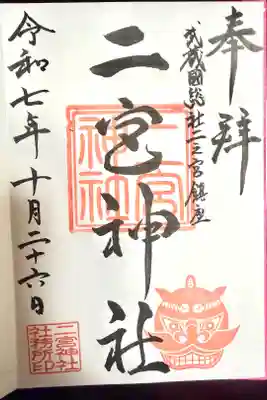 奉拝
武蔵國総社二之宮鎮座
二宮神社
二宮
神社
令和七年十月二十六日
二宮神社
社務所印